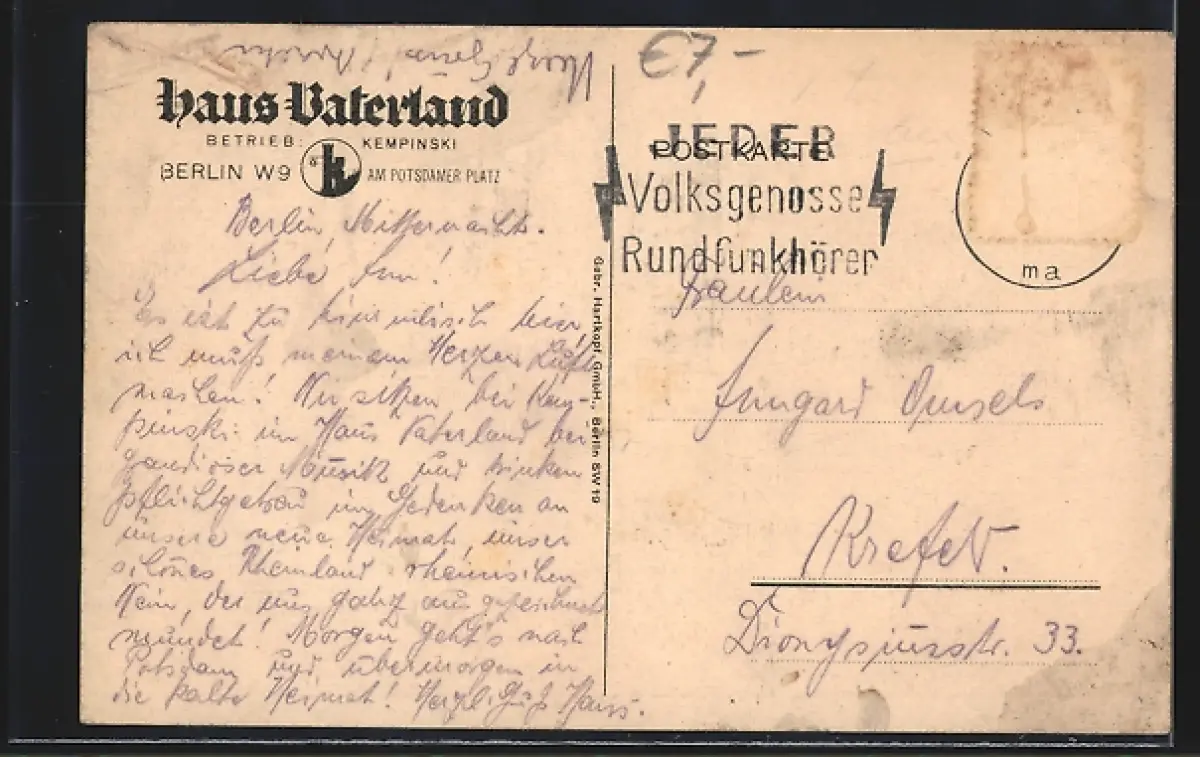 €7,-
Haus Vaterland
BETRIEB: KEMPINSKI
BERLIN W9 AM POTSDAMER PLATZ
Berlin, Mitternacht.
Liebe Irm!
Es ist zu himmlisch hier,
ich muß meinem Herzen Luft
machen! Wir sitzen bei Kem-
pinski im Haus Vaterland bei
grandioser Musik und trinken
pflichtgetreu im Gedenken an
unsere neue Heimat, unser
schönes Rheinland rheinischen
Wein, der uns ganz ausgezeichnet
mundet! Morgen geht's nach
Potsdam und übermorgen in
die kalte Heimat! Herzl. Gruß Hans.
Gebr. Hartkopf GmbH., Berlin SW 19
POSTKARTE
JEDER
Volksgenosse
Rundfunkhörer
ma
Fräulein
Irmgard
Krefeld.
Dionysiusstr. 33.